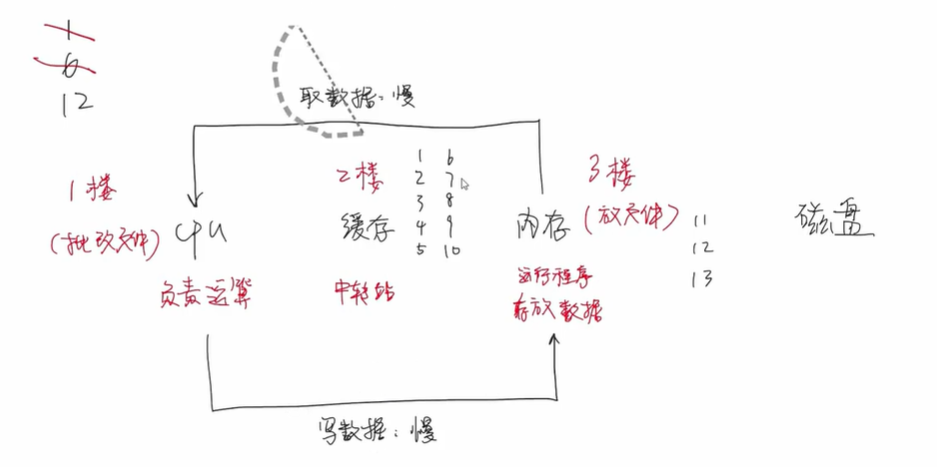 1
6
12
取数据:慢
1楼
(批改文件)
CPU
负责运算
2楼
缓存
中转站
1 6
2 7
3 8
4 9
5 10
3楼
内存
(放文件)
运行程序
存放数据
11
12
13
磁盘
写数据:慢